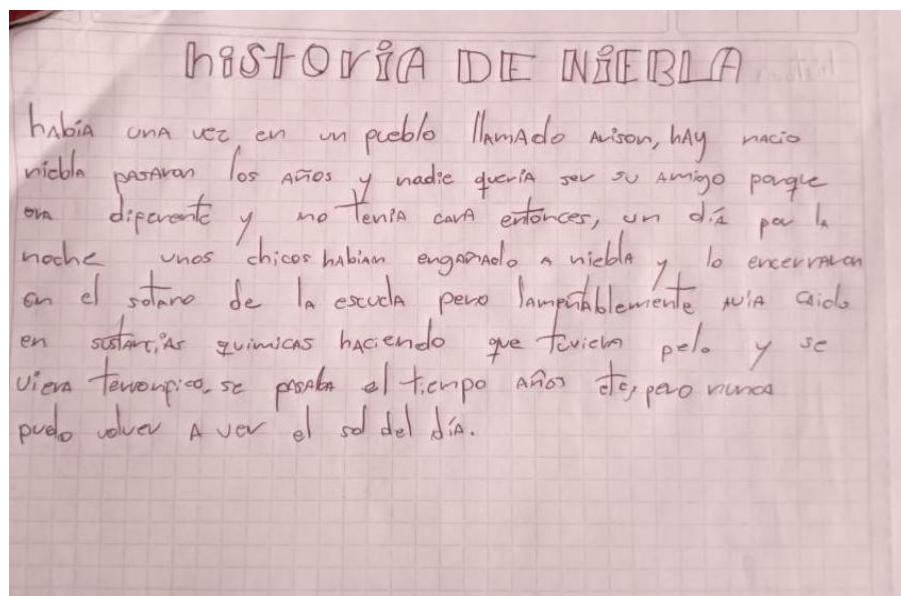 historia DE NiEBLA
hAbiA unA vez en un pueblo llAmAdo Avison, hAy nacio
nieblA pasAron los Años y nadie queriA ser su Amigo porque
era diferente y no tenia carA entonces, un día por la
noche unos chicos hAbian engañAdo A nieblA y lo encerraron
en el sotano de la escuela pero lamentablemente AviA caido
en sustanciAs quimicas haciendo que tuviera pelo y se
viera terrorifico. se pasaba el tiempo Años etc, pero nunca
pudo volver A ver el sol del díA.